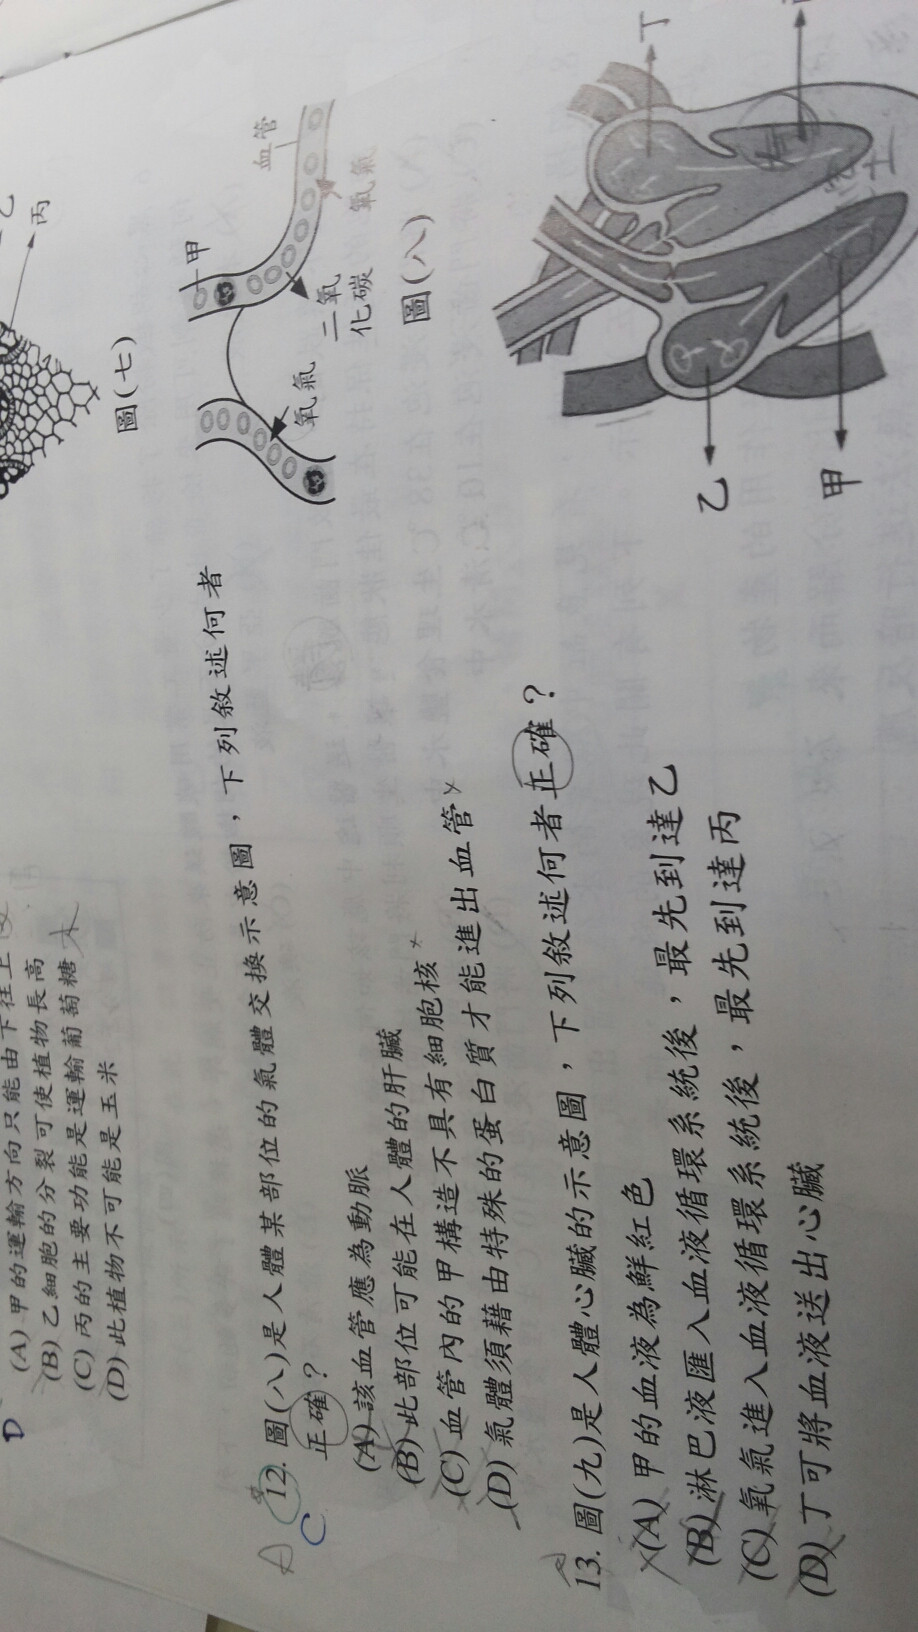 乙
丙
圖(七)
(A) 甲的運輸方向只能由下往上
(B) 乙細胞的分裂可使植物長高
(C) 丙的主要功能是運輸葡萄糖 木
(D) 此植物不可能是玉米
D
12. 圖(八)是人體某部位的氣體交換示意圖，下列敘述何者
正確？
C
(A) 該血管應為動脈
(B) 此部位可能在人體的肝臟
(C) 血管內的甲構造不具有細胞核
(D) 氣體須藉由特殊的蛋白質才能進出血管
甲
血管
氧氣
二氧
化碳
氧氣
圖(八)
13. 圖(九)是人體心臟的示意圖，下列敘述何者正確？
(A) 甲的血液為鮮紅色
(B) 淋巴液匯入血液循環系統後，最先到達乙
(C) 氧氣進入血液循環系統後，最先到達丙
(D) 丁可將血液送出心臟
丁
乙
甲